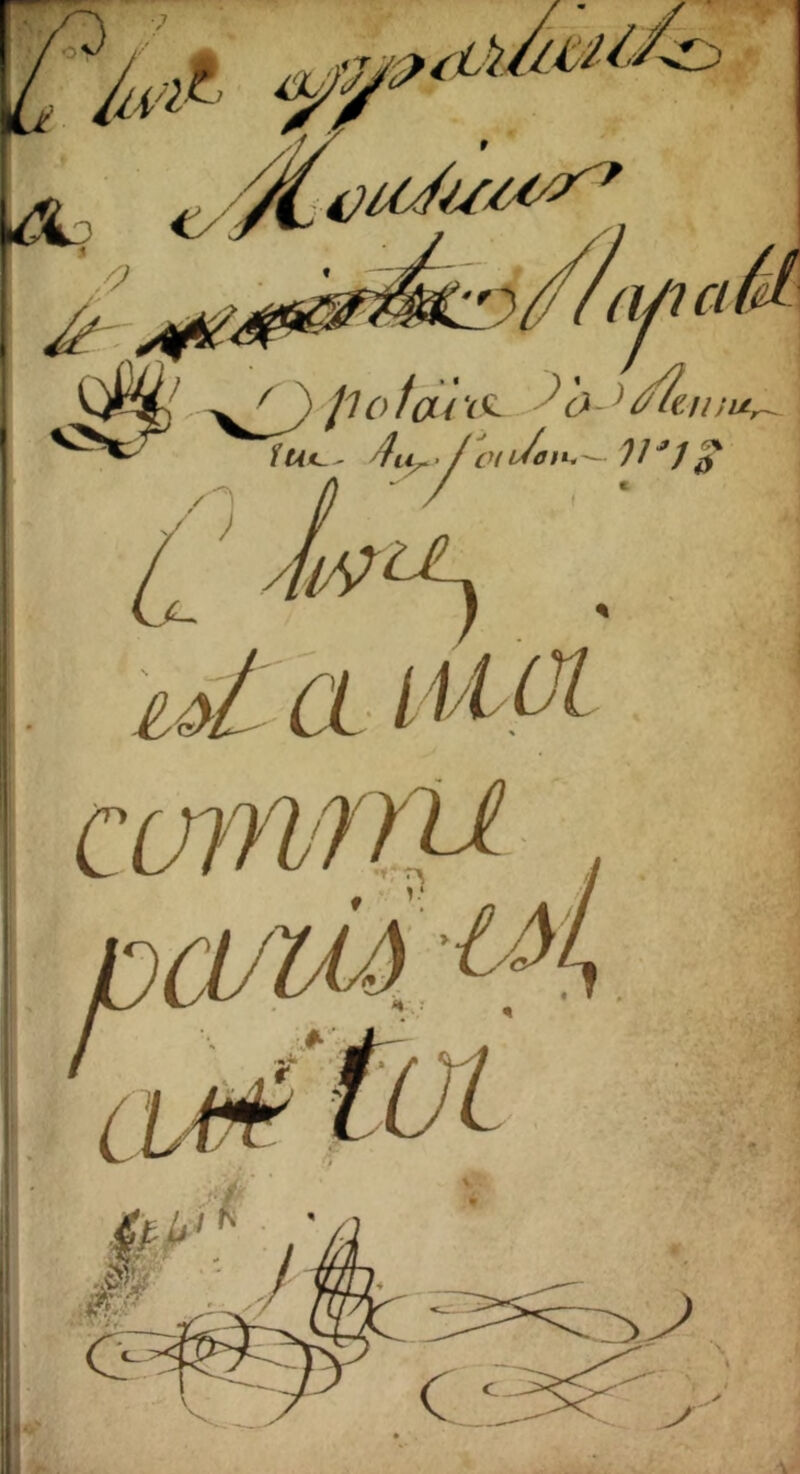 C livre appartients
a Monsieur
le Napatel
Notaire à Rennes
rue Du foulon nº 13
C livre
est a moi
comme
paris est
au roi